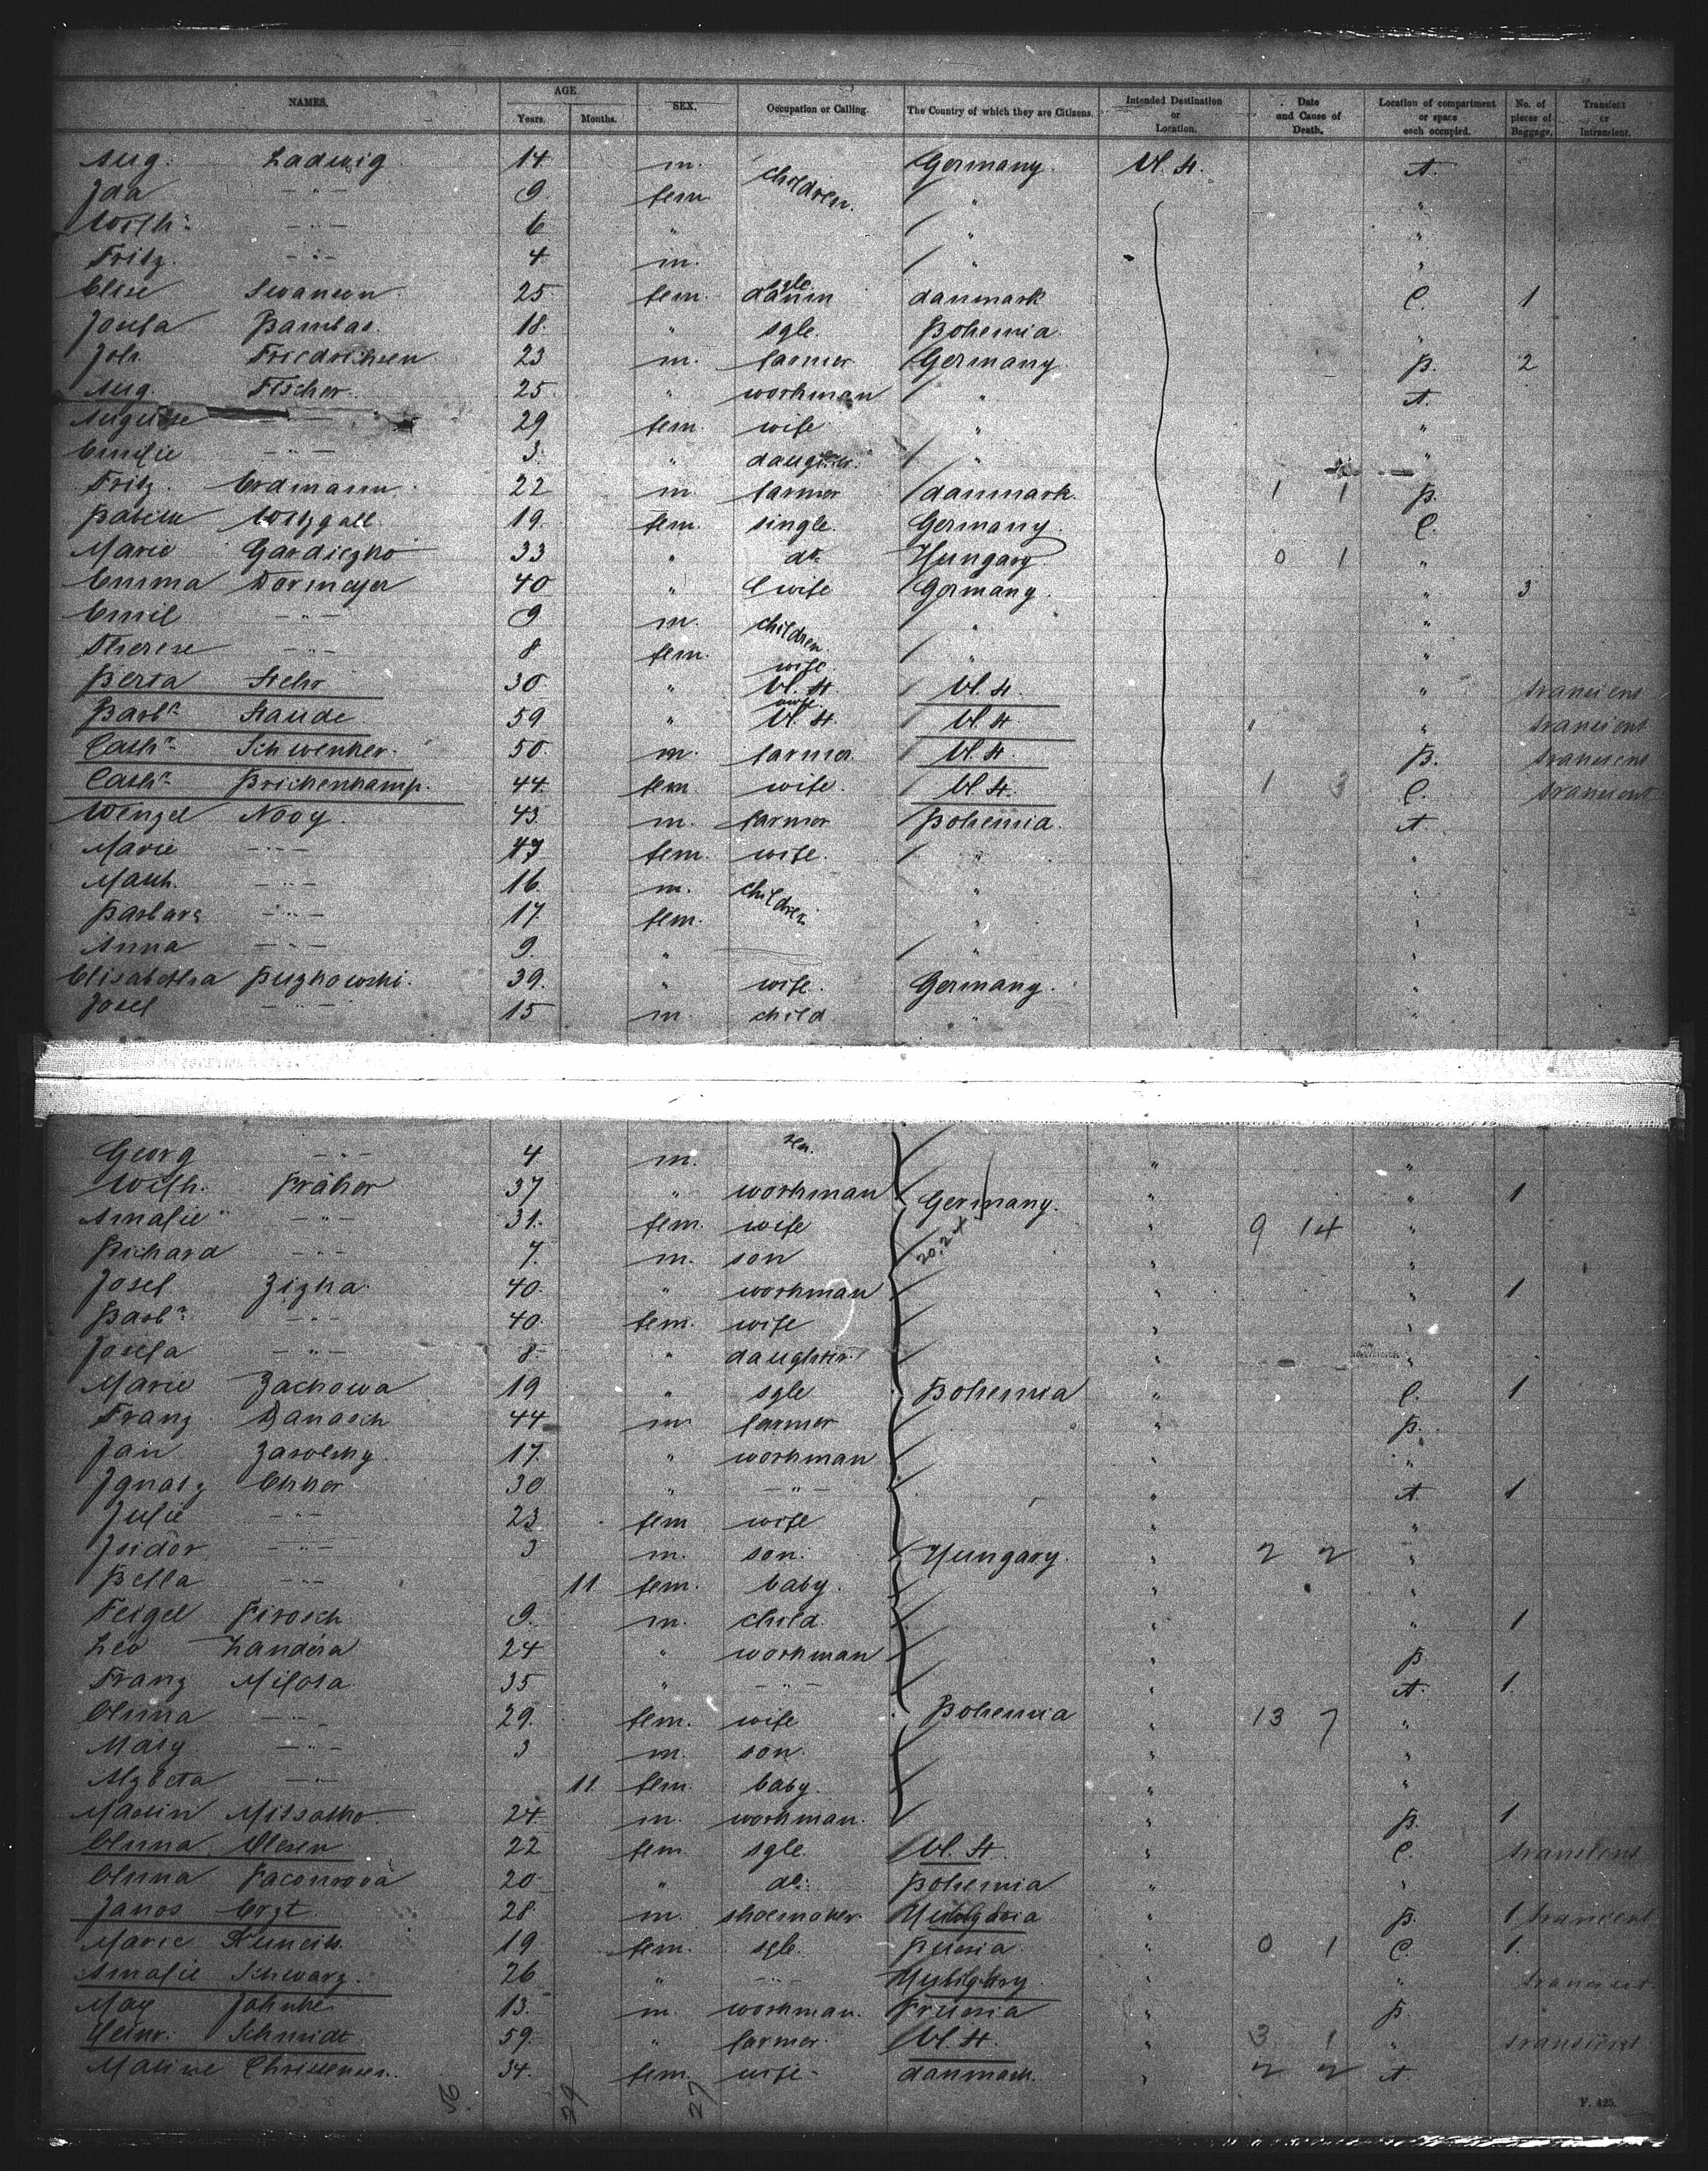 NAMES. AGE Years. Months. SEX. Occupation or Calling. The Country of which they are Citizens. Intended Destination or Location. Date and Cause of Death. Location of compartment or space each occupied. No. of pieces of Baggage. Transient or Intransient.
Aug. Ladwig 14 m. children. Germany. U. St. A.
Ida -"- 9. fem. " "
Wilh: -"- 6 " " "
Fritz. -"- 4 m. " "
Elise Swanson 25 fem. sgle. danmark C. 1
Josefa Bambas. 18. " sgle. Bohemia. "
Joh. Friedrichsen 23 m. farmer Germany. B. 2
Aug. Fischer. 25. " workman " A.
Auguste -"- 29 fem. wife " "
Emilie -"- 3. " daughter. " "
Fritz. Erdmann. 22 m. farmer danmark. 1 1 B.
Babette Witzgall. 19. fem. single. Germany. C.
Marie 33 " do. Hungary. 0 1 "
Emma Dormeyer 40 " wife Germany. " 3
Emil -"- 9 m. children. " "
Therese -"- 8 fem. " "
Berta Stehr 30 " wife. U. St. U. St. " transient
Barba Staude. 59 " wife. U. St. U. St. " " transient
Catha Schwenker. 50. m. farmer. U. St. B. transient
Catha Brickenkamp. 44. fem. wife. U. St. 1 3 C. transient
Wenzel 43. m. farmer Bohemia. A.
Marie -"- 47 fem. wife. " "
Math. -"- 16. m. children " "
Barbara -"- 17. fem. " "
Anna -"- 9. " " "
Elisabetha Puzkowski. 39. " wife. Germany. "
Josef -"- 15 m. child " "
Georg -"- 4 m. son. " "
Wilh. Fräker 37 " workman Germany. " " 1
Amalie -"- 31. fem. wife 20.24 " 9 14 "
Richard -"- 7. m. son " "
Josef Zizka. 40. " workman " " 1
Barba -"- 40. fem. wife " "
Josefa -"- 8. " daughter. " "
Marie Zachowa 19 " sgle Bohemia " C. 1
Franz Danasch 44 m. farmer " B.
Jan 17. " workman " "
Ignatz Ekker 30 " -"- " A. 1
Julie -"- 23 fem wife " "
Isidor -"- 3 m. son. Hungary. " 2 2 "
Bella -"- 11 fem. baby. " "
Feigel Pirosch 9. m. child. " 1
Leo 24 " workman " B.
Franz Milota 35 " -"- " A. 1.
Anna -"- 29. fem. wife Bohemia " 13 7 "
Maty -"- 3 m. son. " "
Alzbeta -"- 11. fem. baby. " "
Martin 24. m. workman. " B. 1
Anna Olesen 22 fem. sgle. U. St. " C. transient
Anna 20. " do. Bohemia " "
Janos 28. m. shoemaker. " B. 1 transient
Marie 19 fem. sgle. " 0 1 C. 1.
Amalie Schwarz. 26 " -"- " transient
Max Jahnke 13. m. workman. " B.
Heinr. Schmidt. 59. " farmer. U. St. " 3 1 " transient
Maline Christensen. 34. fem. wife. danmark. " 2 2 A.
29 27
F. 425.